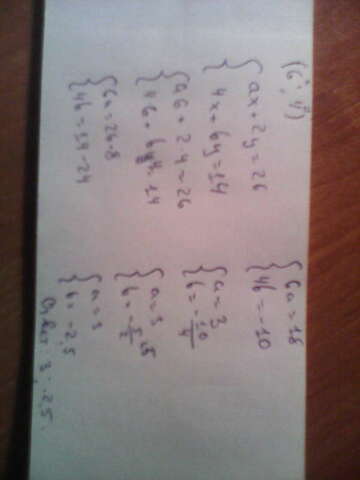 (6; 4)
{ ax + 2y = 26
{ 4x + by = 14
{ a6 + 2·4 = 26
{ 4·6 + b·4 = 14
{ 6a = 26-8
{ 4b = 14-24
{ 6a = 18
{ 4b = -10
{ a = 3
{ b = -10/4
{ a = 3
{ b = -5/2
{ a = 3
{ b = -2,5
Ответ: 3; -2,5.